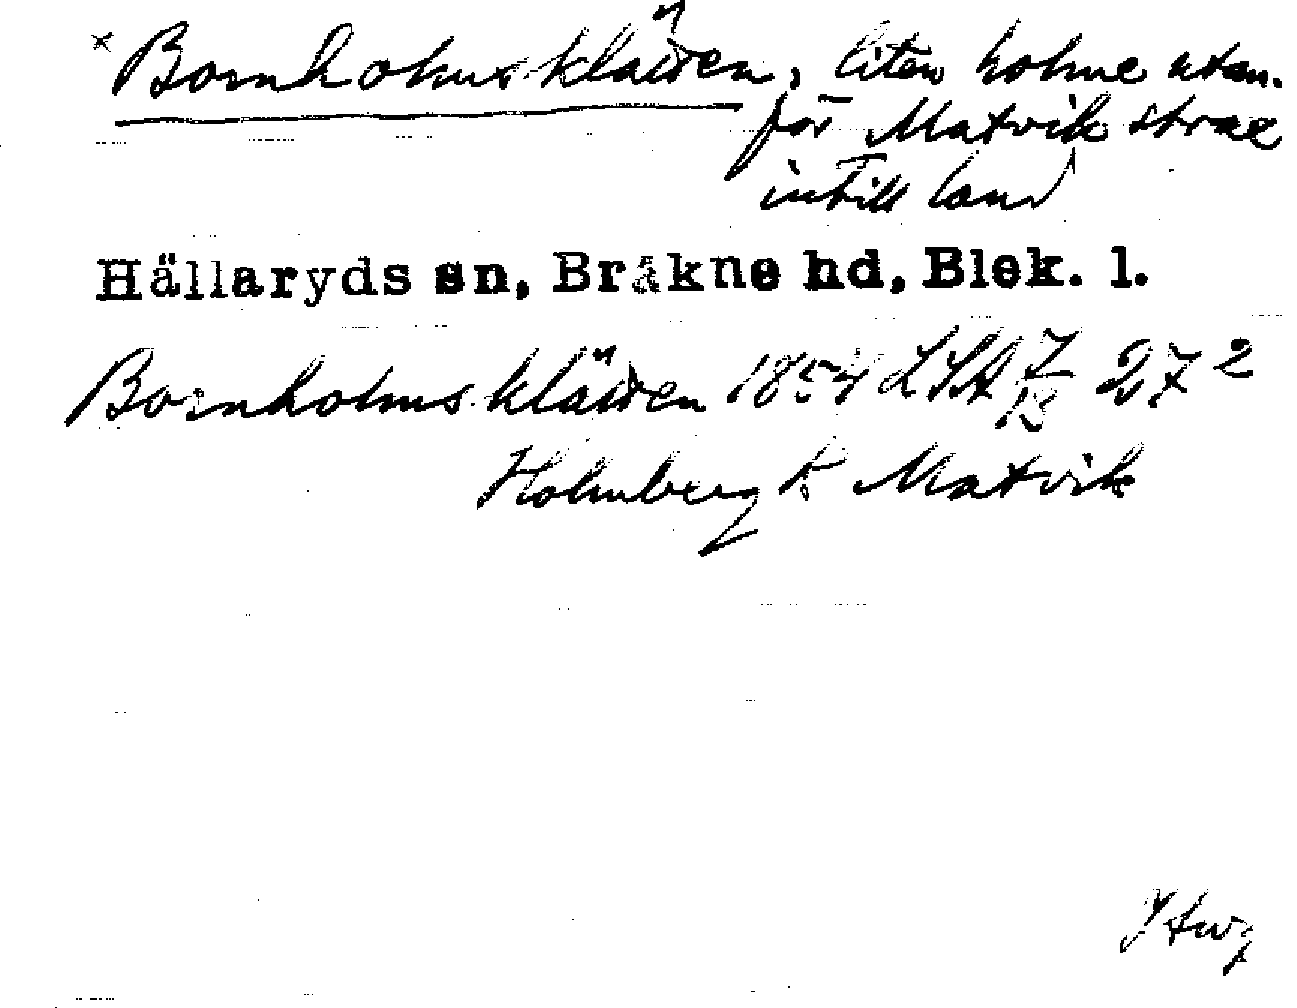 * Bornholmskläden, liten holme utan-
för Matvik strax
intill land
Hällaryds sn, Bräkne hd, Blek. l.
Bornholmskläden 1854 LSA 27²
Holmberg Matvik